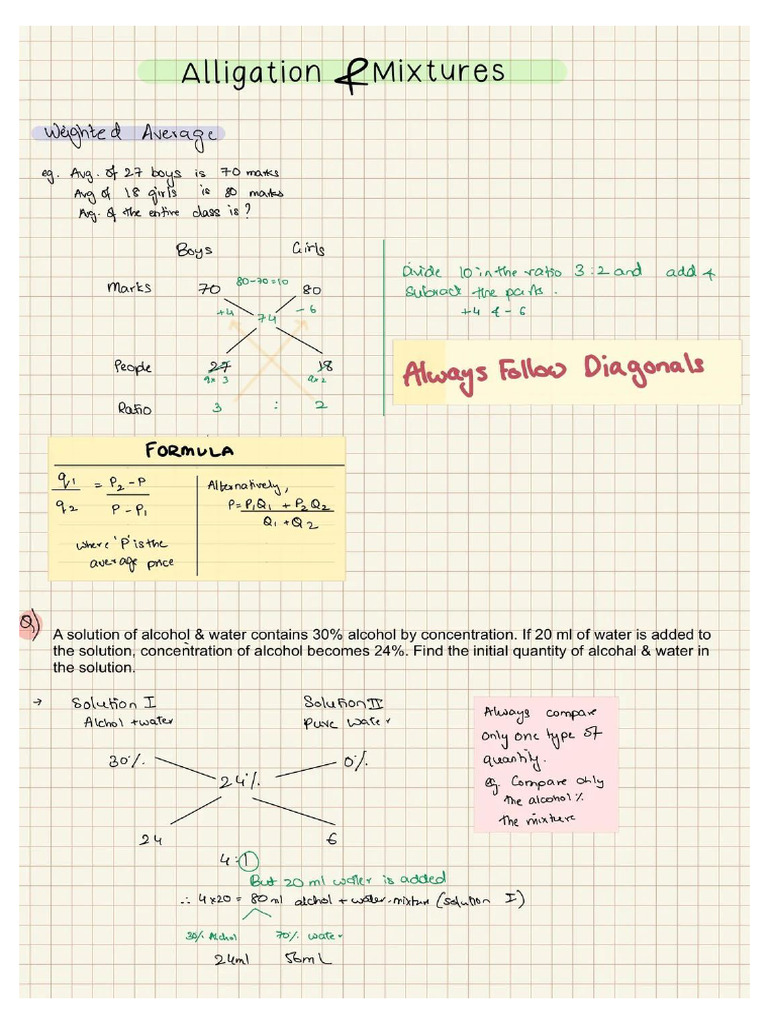 Alligation & Mixtures
Weighted Average
eg. Avg. of 27 boys is 70 marks
Avg of 18 girls is 80 marks
Avg. of the entire class is?
Boys Girls
Marks 70 80-70=10 80
+4 74 -6
People 27 18
9x3 9x2
Ratio 3 : 2
Divide 10 in the ratio 3:2 and add &
Subtract the parts.
+4 & -6
Always Follow Diagonals
FORMULA
q1/q2 = P2-P/P-P1
where 'P' is the
average price
Alternatively,
P = P1Q1 + P2Q2/Q1+Q2
Q)
A solution of alcohol & water contains 30% alcohol by concentration. If 20 ml of water is added to
the solution, concentration of alcohol becomes 24%. Find the initial quantity of alcohal & water in
the solution.
→ Solution I Solution II
Alchol + water Pure water
30% 0%
24%
24 6
4:1
But 20 ml water is added
∴ 4x20 = 80ml alchol + water mixture (solution I)
30% Alchol 70% water
24ml 56mL
Always compare
only one type of
quantity.
eg. Compare only
the alcohol %
the mixture